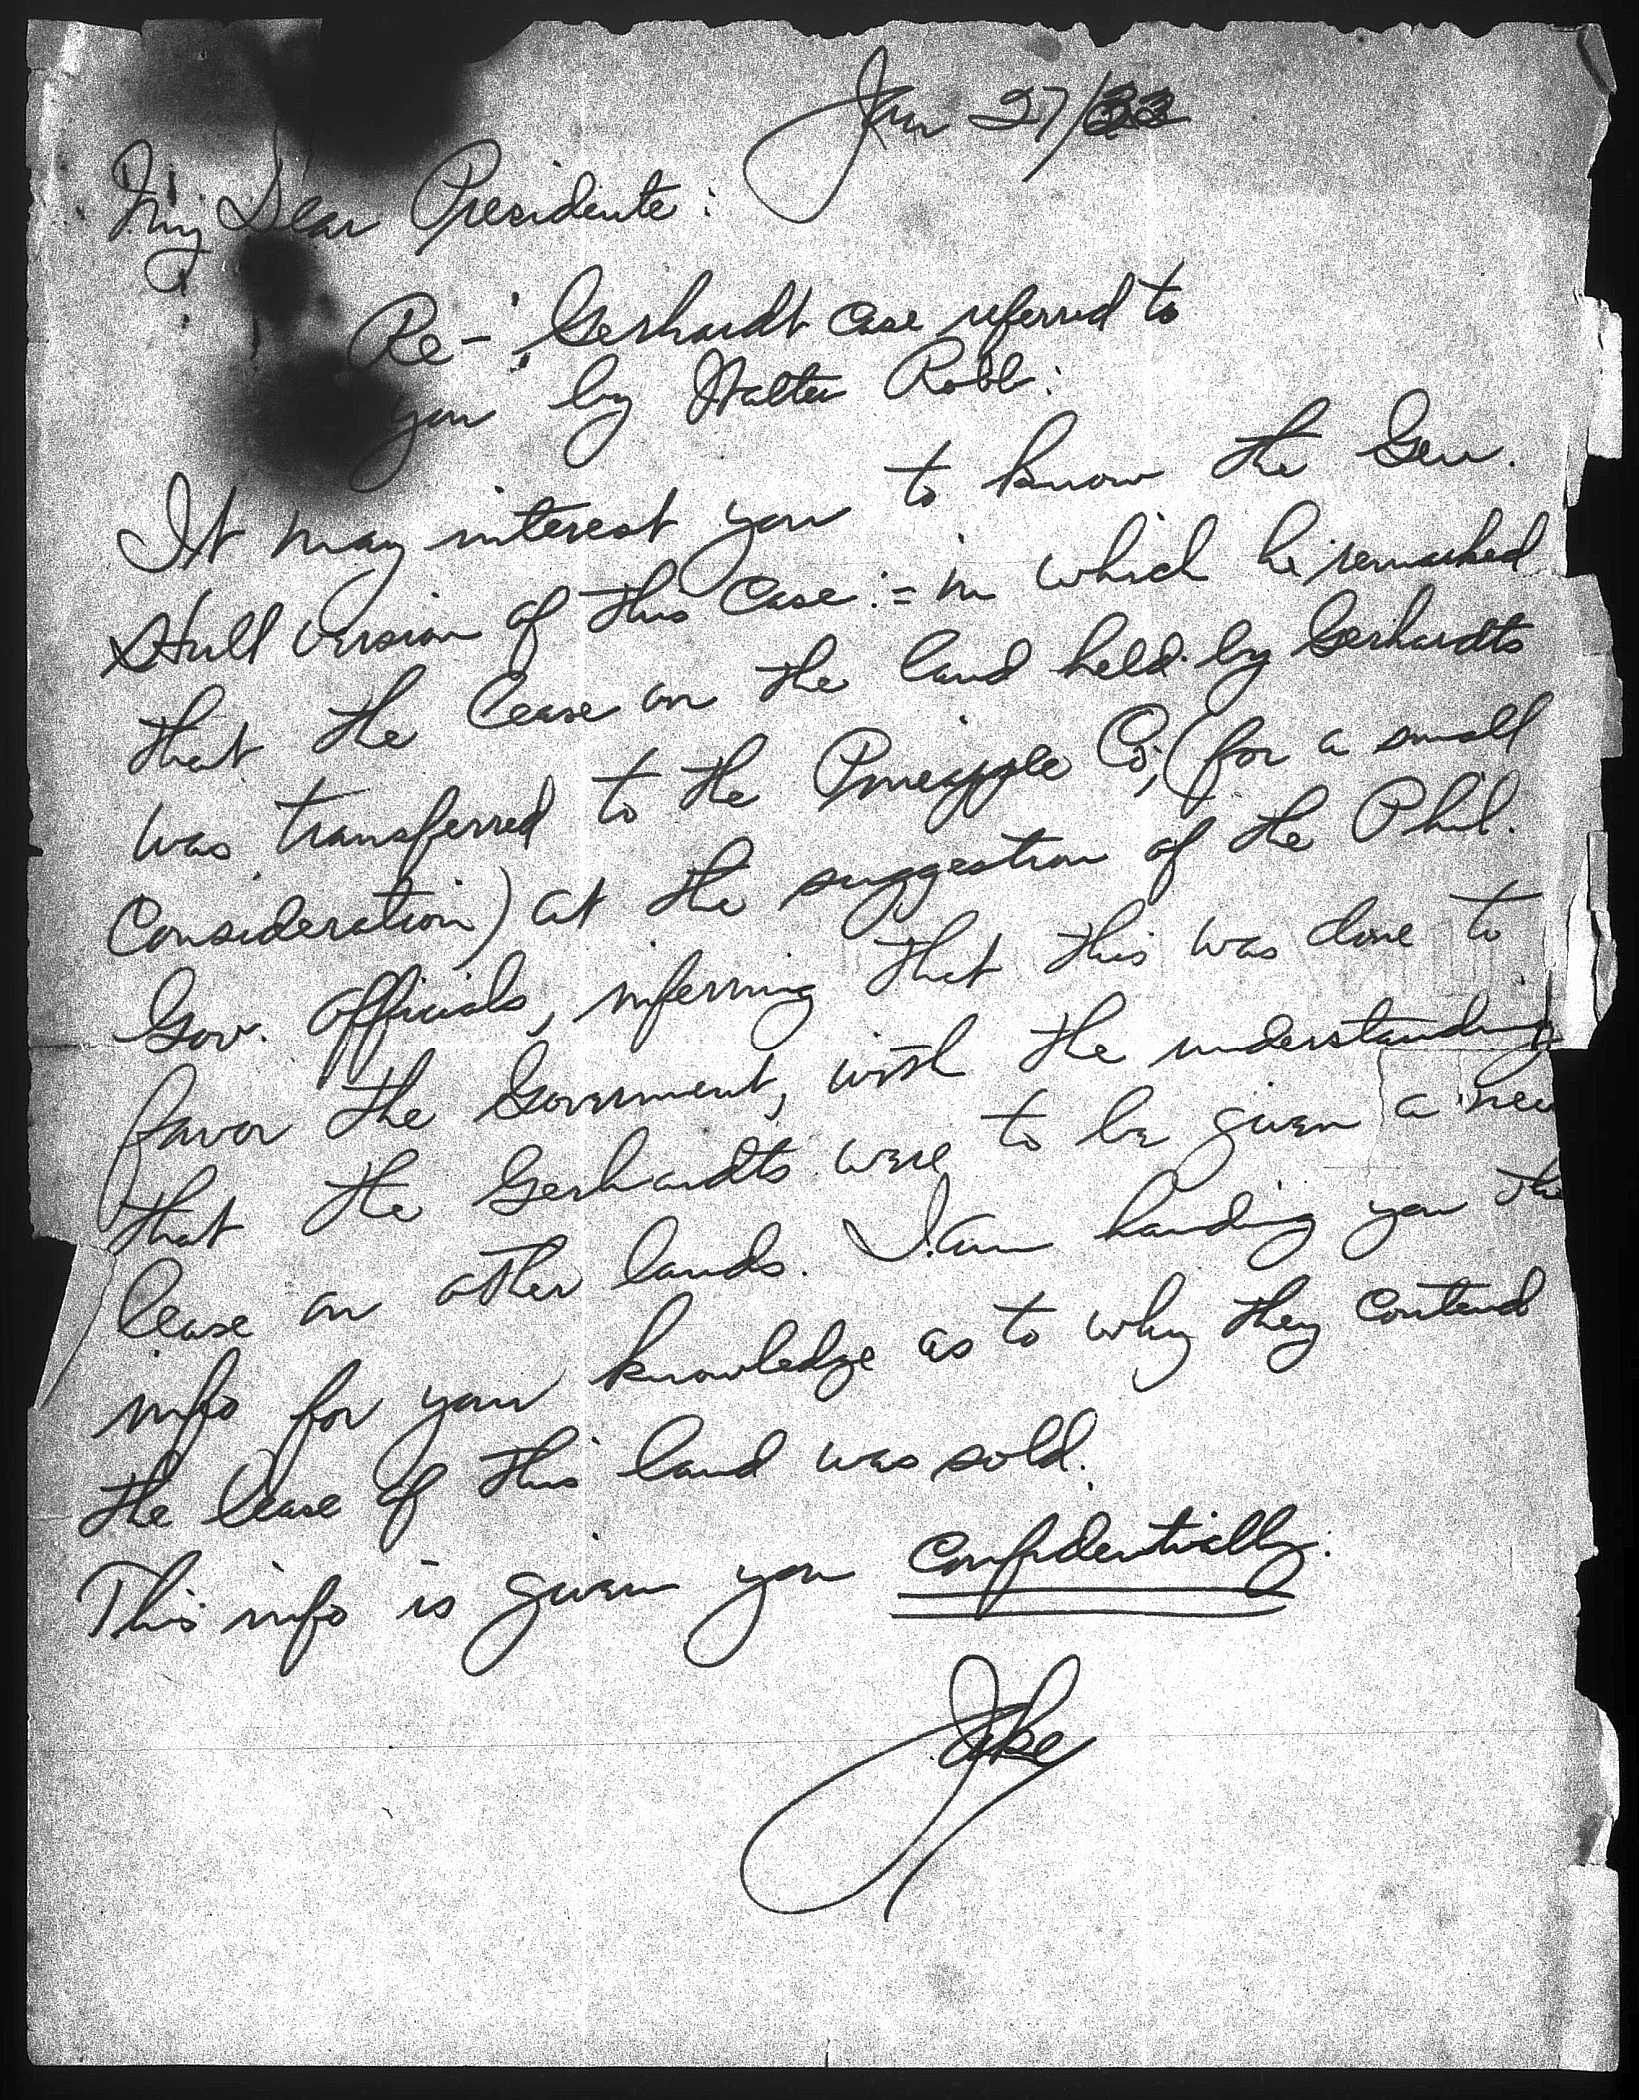 Jan 27/33
My Dear Presidente:
Re-: Gerhardt case referred to
you by Walter Robb:
It may interest you to know the Gen.
Hull version of this case:= in which he remarked
that the lease on the land held by Gerhardts
was transferred to the Pineapple Co, (for a small
Consideration) at the suggestion of the Phil.
Gov. officials, inferring that this was done to
favor the Government, with the understanding
that the Gerhardts were to be given a new
lease on other lands. I am handing you the
info for your knowledge as to why they contend
the lease of this land was sold.
This info is given you Confidentially.
Jake